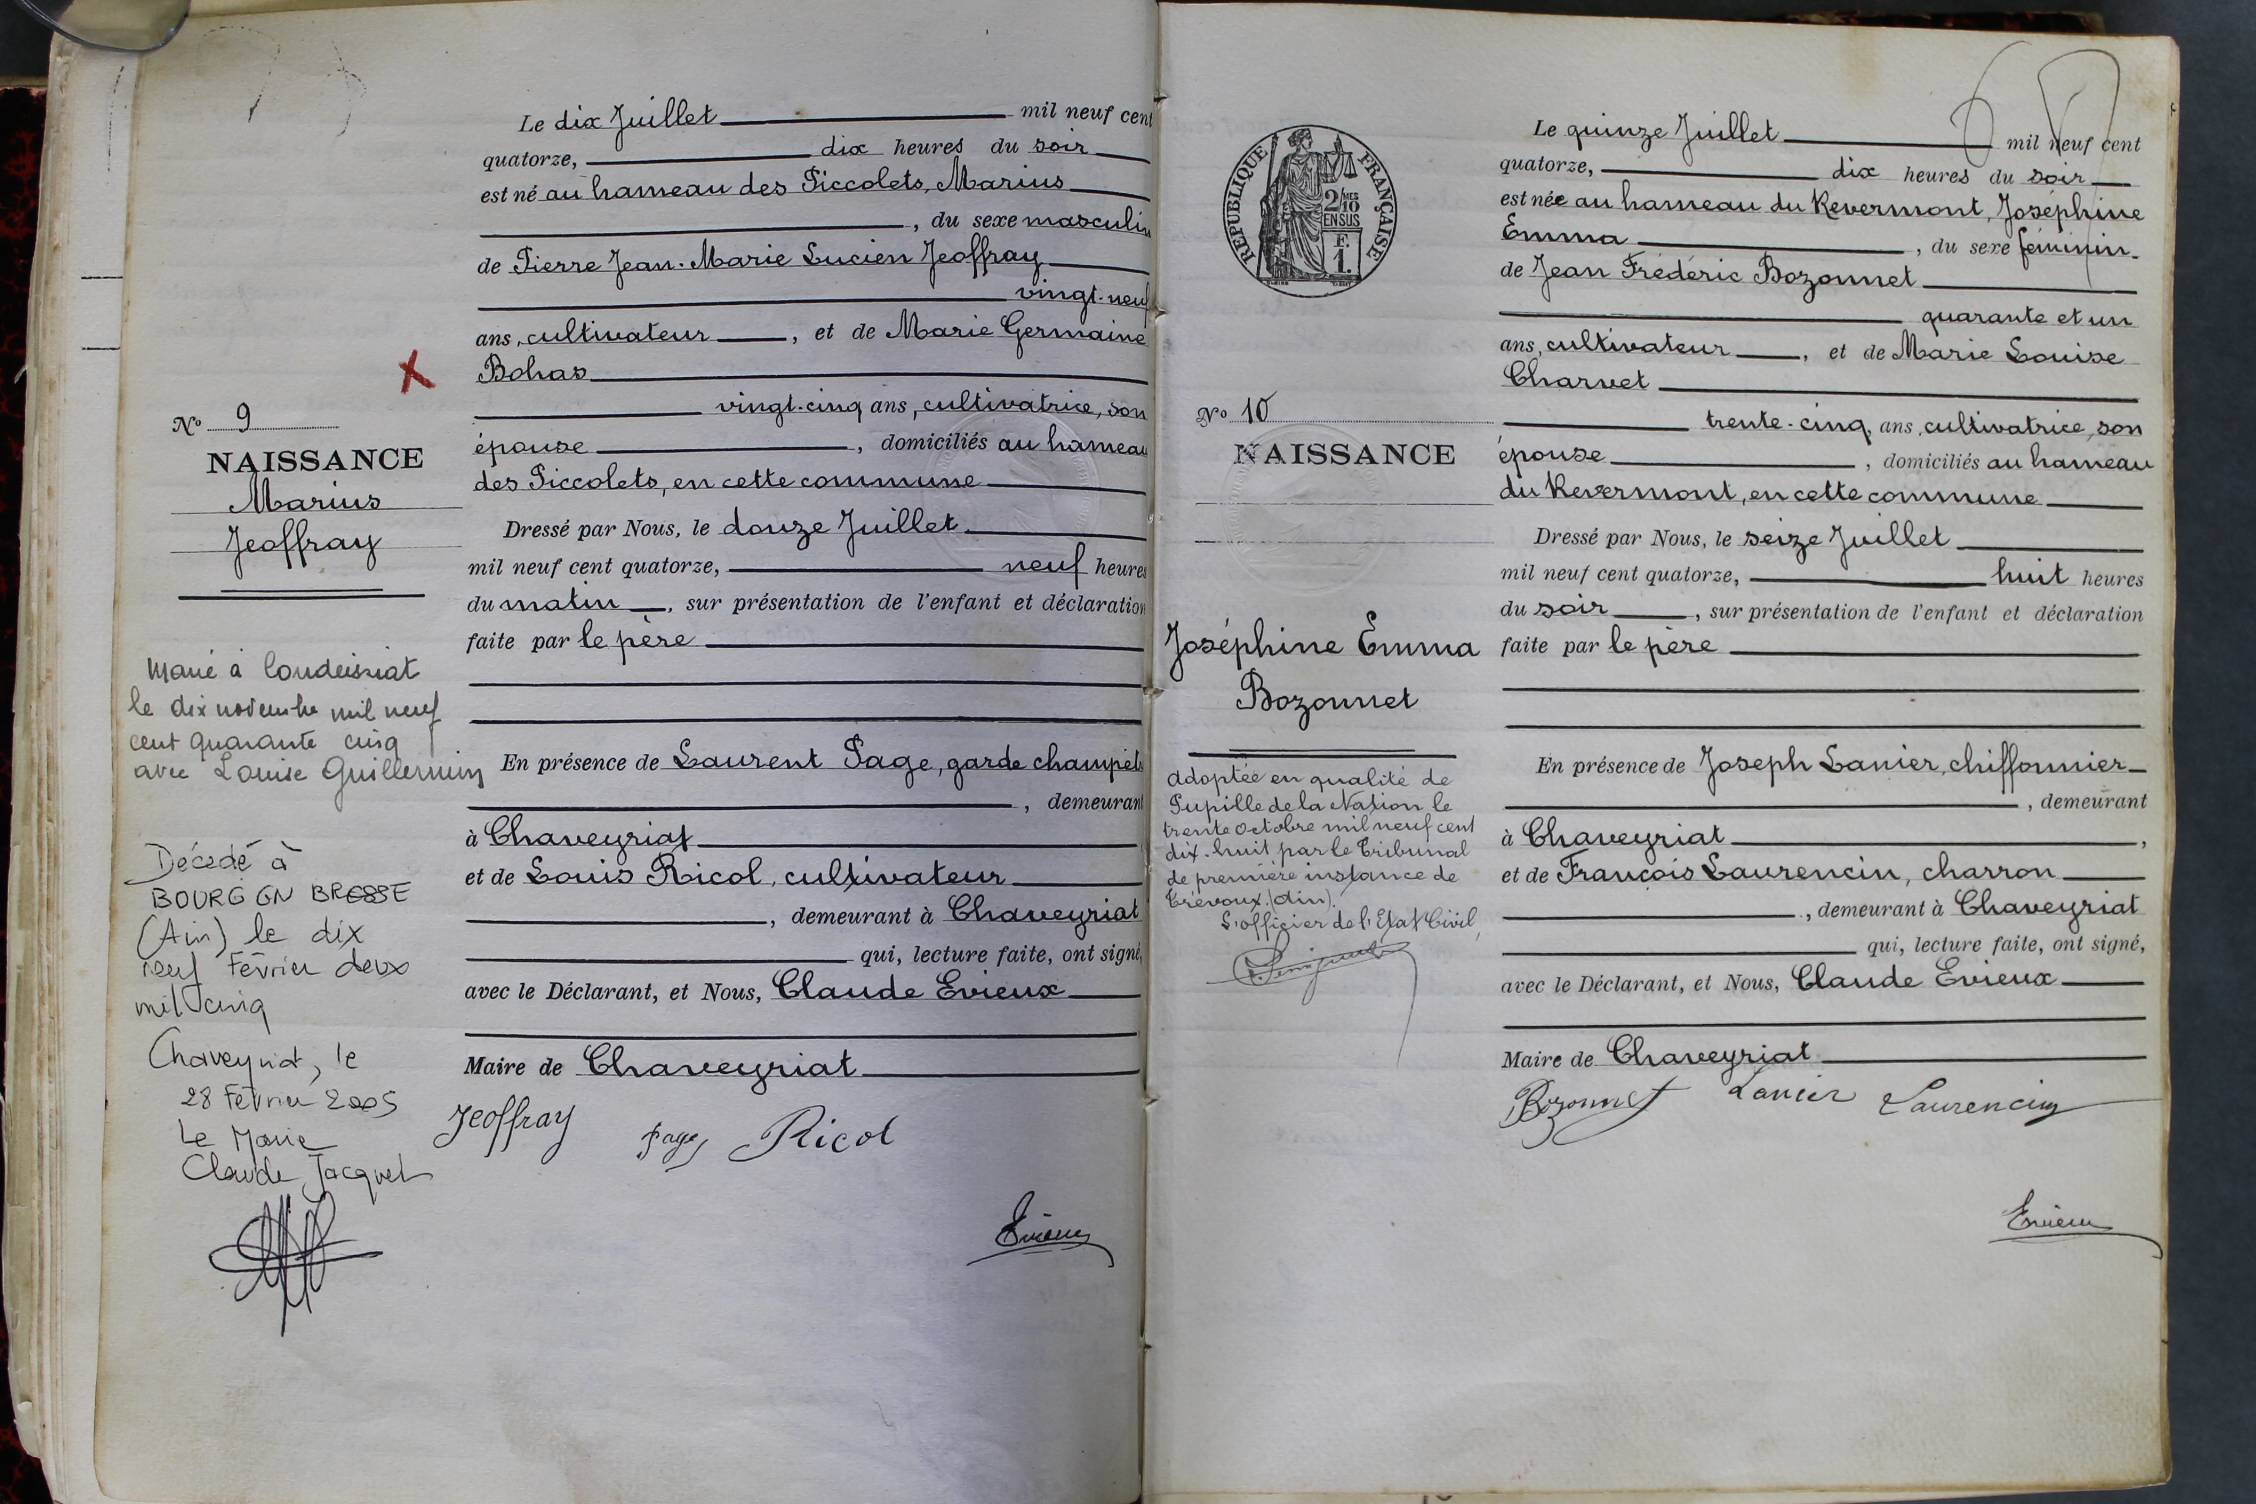 Le dix Juillet mil neuf cent
quatorze, dix heures du soir
est né au hameau des Piccolets, Marius
, du sexe masculin
de Pierre Jean-Marie Lucien Jeoffray
vingt-neuf
ans, cultivateur, et de Marie Germaine
Bohas
vingt-cinq ans, cultivatrice, son
épouse, domiciliés au hameau
des Piccolets, en cette commune
Dressé par Nous, le douze Juillet
mil neuf cent quatorze, neuf heures
du matin, sur présentation de l'enfant et déclaration
faite par le père
En présence de Laurent Page, garde champêtre
, demeurant
à Chaveyriat
et de Louis Ricol, cultivateur
, demeurant à Chaveyriat
qui, lecture faite, ont signé,
avec le Déclarant, et Nous, Claude Evieux
Maire de Chaveyriat
Jeoffray page Ricol
Evieux
No 9
NAISSANCE
Marius
Jeoffray
Marié à Condeissiat
le dix novembre mil neuf
cent quarante cinq
avec Louise Guillermin
Décédé à
BOURG EN BRESSE
(Ain) le dix
neuf Février deux
mil cinq
Chaveyriat, le
28 Février 2005
Le Maire
Claude Jacquet
RÉPUBLIQUE FRANÇAISE
2/10MES
EN SUS
F.
1.
No 10
NAISSANCE
Joséphine Emma
Bozonnet
Adoptée en qualité de
Pupille de la Nation le
trente Octobre mil neuf cent
dix-huit par le Tribunal
de première instance de
Trévoux (Ain).
L'officier de l'Etat Civil,
Le quinze Juillet mil neuf cent
quatorze, dix heures du soir
est née au hameau du Revermont, Joséphine
Emma, du sexe féminin
de Jean Frédéric Bozonnet
quarante et un
ans, cultivateur, et de Marie Louise
Charvet
trente-cinq ans, cultivatrice, son
épouse, domiciliés au hameau
du Revermont, en cette commune
Dressé par Nous, le seize Juillet
mil neuf cent quatorze, huit heures
du soir, sur présentation de l'enfant et déclaration
faite par le père
En présence de Joseph Lanier, chiffonnier
, demeurant
à Chaveyriat,
et de François Laurencin, charron
, demeurant à Chaveyriat
qui, lecture faite, ont signé,
avec le Déclarant, et Nous, Claude Evieux
Maire de Chaveyriat
Bozonnet Lanier Laurencin
Evieux